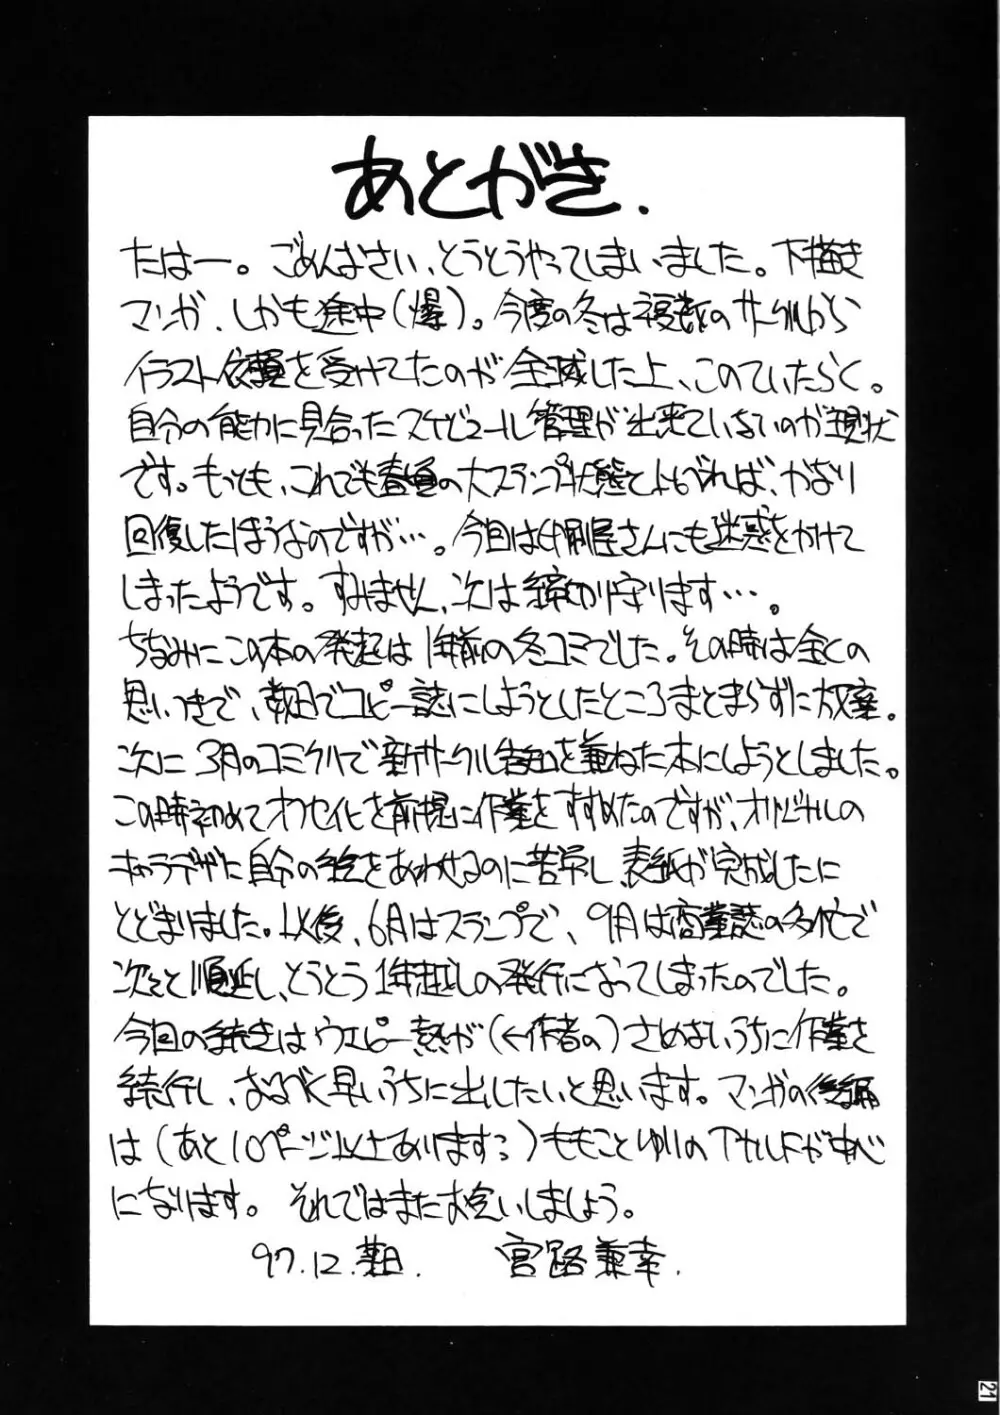 あとがき.
たはー。ごめんなさい、とうとうやってしまいました。下描き
マンガ、しかも途中(爆)。今度の冬は複数のサークルから
イラスト依頼を受けてたのが全滅した上、このていたらく。
自分の能力に見合ったスケジュール管理が出来ていないのが現状
です。もっとも、これでも春夏の大スランプ状態とよべれば、かなり
回復したほうなのですが…。今回は印刷屋さんにも迷惑をかけて
しまったようです。すみません、次は締切り守ります…。
ちなみにこの本の発起は1年前の冬コミでした。その時は全くの
思いつきで、朝日でコピー誌にしようとしたところまとまらずに放棄。
次に3月のコミケルで新サークル告知を兼ねた本にしようとしました。
この時初めてオフセイヒを前提に作業をすすめたのですが、オリジナルの
キャラデザに自分の絵をあわせるのに苦労し、表紙が完成したに
とどまりました。以後、6月はスランプで、9月は商業誌の多忙で
次々と順延し、とうとう1年越しの発行になってしまったのでした。
今回の続きはウエピー熱が(←作者の)さめないうちに作業を
続行し、なるべく早いうちに出したいと思います。マンガの後編
は(あと10ページ以上あります;)ももことゆりのアカルドが中心
になります。それではまたお会いしましょう。
97.12.某日. 宮路兼幸.
21